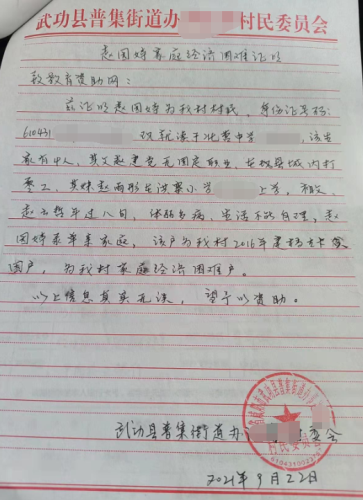 武功县普集街道办 村民委员会
赵园婷家庭经济困难证明
致教育资助网：
兹证明赵园婷为我村村民，身份证号码：
610431 现就读于 中学 ，该生
家有4人，其父赵 无固定职业，在 县城内打
零工，其妹赵雨彤在 小学 上学，祖父
赵 年过八旬，体弱多病，生活不能自理，赵
园婷系单亲家庭，该户为我村2016年建档立卡贫
困户，为我村家庭经济困难户。
以上信息真实无误，望予以资助。
武功县普集街道办 委会
2021年9月22日